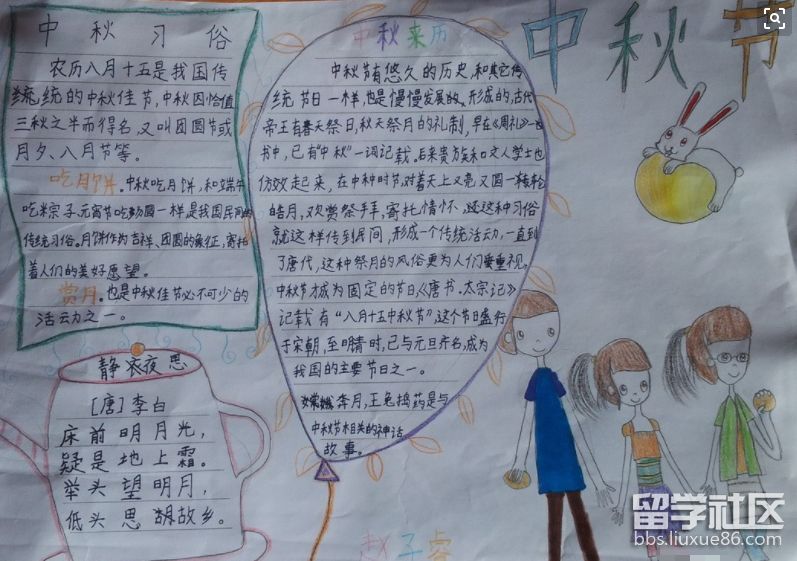 中秋节
中秋习俗
农历八月十五是我国传
统的中秋佳节,中秋因恰值
三秋之半而得名,又叫团圆节或
月夕、八月节等。
吃月饼.中秋吃月饼,和端午
吃粽子元宵节吃汤圆一样是我国民间的
传统习俗。月饼作为吉祥、团圆的象征,寄托
着人们的美好愿望。
赏月.也是中秋佳节必不可少的
活动之一。
中秋来历
中秋节有悠久的历史,和其它传
统节日一样,也是慢慢发展的、形成的,古代
帝王有春天祭日,秋天祭月的礼制,早在《周礼》一
书中,已有“中秋”一词记载。后来贵族和文人学士也
仿效起来,在中种时节,对着天上又亮又圆一
皓月,欢赏祭手,寄托情怀.这种习俗
就这样传到民间,形成一个传统活动,一直到
了唐代,这种祭月的风俗更为人们重视,
中秋节才成为固定的节日,《唐书.太宗记》
记载有“八月十五中秋节”,这个节日盛行
于宋朝,至明清时,已与元旦齐名,成为
我国的主要节日之一。
嫦娥奔月,玉兔捣药是与
中秋节相关的神话
故事。
静夜思
[唐]李白
床前明月光,
疑是地上霜。
举头望明月,
低头思故乡。
赵子睿
留学社区
bbs.liuxue86.com